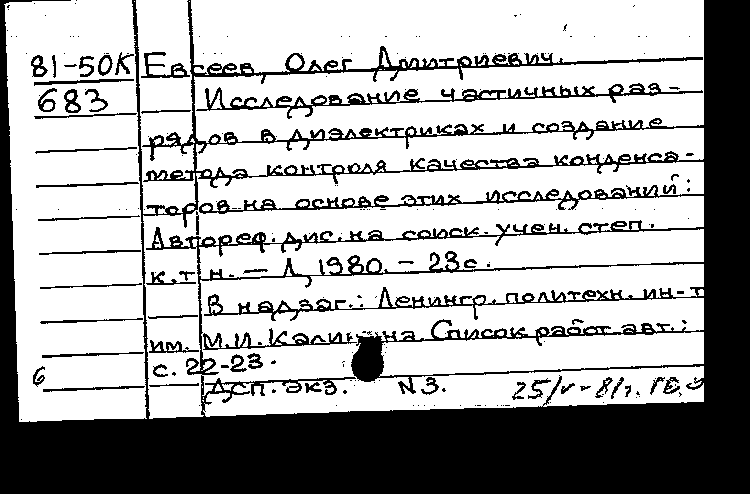 81-50К Евсеев, Олег Дмитриевич.
683 Исследование частичных раз-
рядов в диэлектриках и создание
метода контроля качества конденса-
торов на основе этих исследований:
Автореф. дис. на соиск. учен. степ.
к.т.н. — Л, 1980. – 23с.
В надзаг.: Ленингр. политехн. ин-т
им. М.И. Калинина. Список работ авт.:
с. 22-23.
6
Дсп. экз. N3. 25/V-81г.